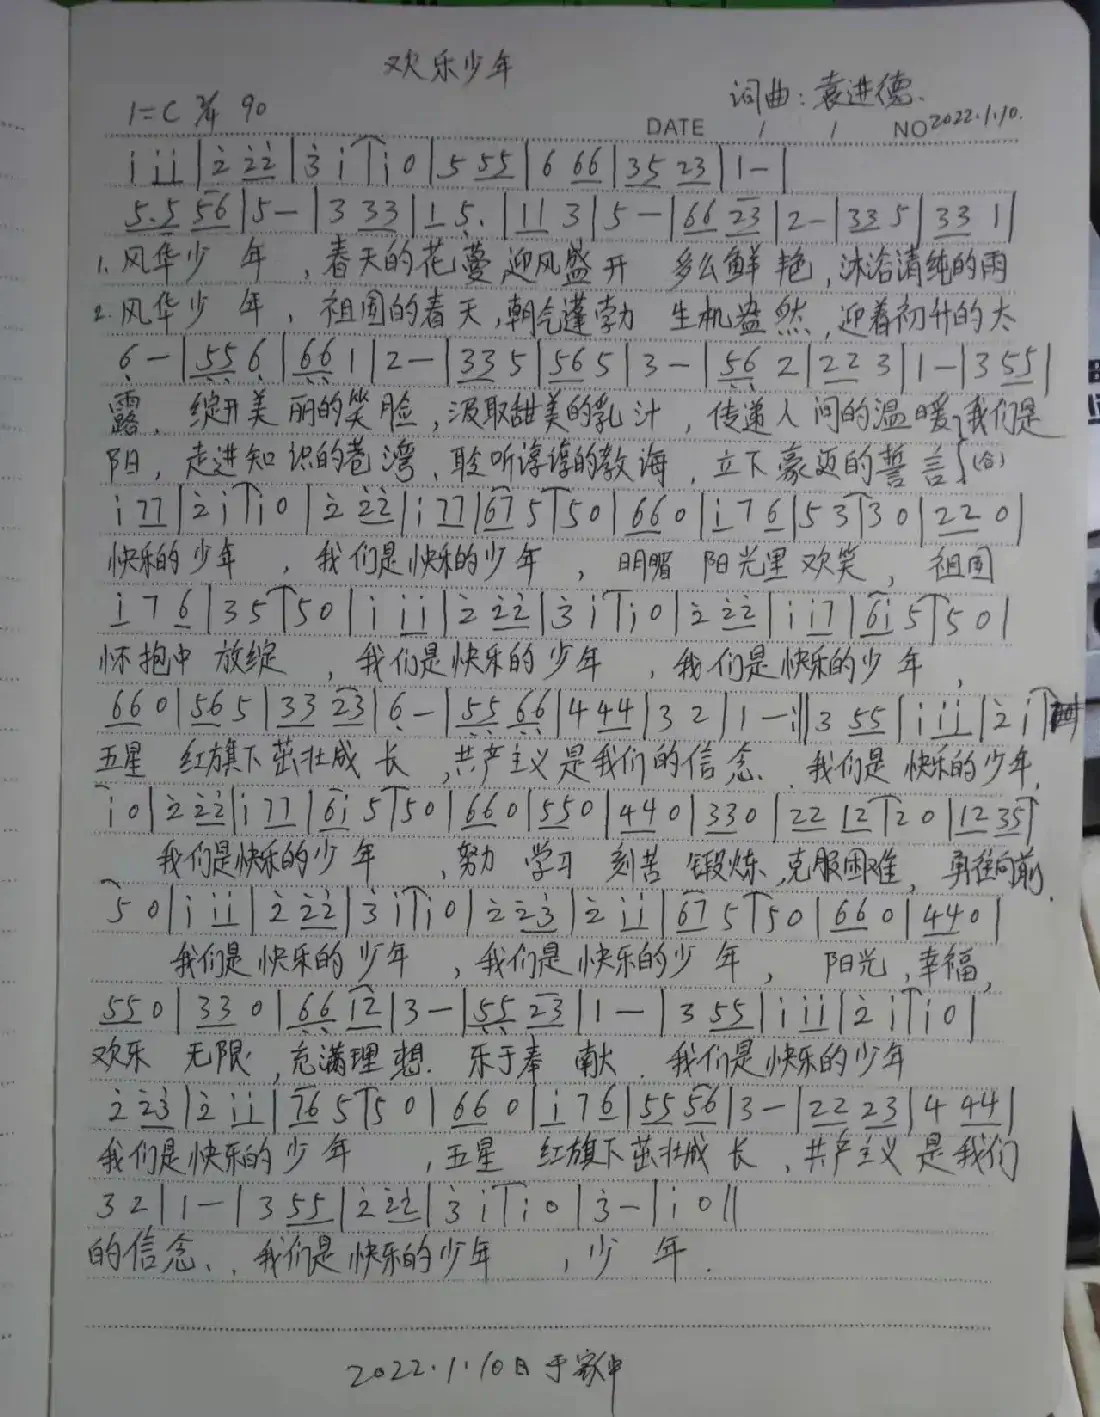 欢乐少年
1=C 2/4 90
词曲:袁进德.
DATE / / NO 2022.1.10.
i i i | 2 2 2 | 3 i | i 0 | 5 5 5 | 6 6 6 | 3 5 2 3 | 1 - |
5. 5 5 6 | 5 - | 3 3 3 | 1 5. | 1 1 3 | 5 - | 6 6 2 3 | 2 - | 3 3 5 | 3 3 1 |
1. 风华少 年 ,春天的花蔓迎风盛开 多么鲜 艳,沐浴清纯的雨
2. 风华少 年 ,祖国的春天,朝气蓬勃 生机盎然,迎着初升的太
6 - | 5 5 6 | 6 6 1 | 2 - | 3 3 5 | 5 6 5 | 3 - | 5 6 2 | 2 2 3 | 1 - | 3 5 5 |
露. 绽开美 丽的笑脸,汲取甜美的乳汁,传递人间的温暖,我们是
阳,走进知 识的港湾,聆听谆谆的教诲,立下豪迈的誓言(合)
i 7 7 | 2 i | i 0 | 2 2 2 | i 7 7 | 6 7 5 | 5 0 | 6 6 0 | i 7 6 | 5 3 | 3 0 | 2 2 0 |
快乐的少年 ,我们是快乐的少年 ,明媚 阳光里欢笑 ,祖国
i 7 6 | 3 5 | 5 0 | i i i | 2 2 2 | 3 i | i 0 | 2 2 2 | i i 7 | 6 i 5 | 5 0 |
怀抱中 放绽 ,我们是快乐的少年 ,我们是快乐的少年,
6 6 0 | 5 6 5 | 3 3 2 3 | 6 - | 5 5 6 6 | 4 4 4 | 3 2 | 1 - :|| 3 5 5 | i i i | 2 i |
五星 红旗下茁壮成长 ,共产主义是我们的信念. 我们是快乐的少年,
i 0 | 2 2 2 | i 7 7 | 6 i 5 | 5 0 | 6 6 0 | 5 5 0 | 4 4 0 | 3 3 0 | 2 2 1 2 | 2 0 | 1 2 3 5 |
我们是快乐的少年 ,努力 学习 刻苦 锻炼,克服困难, 勇往向前.
5 0 | i i i | 2 2 2 | 3 i | i 0 | 2 2 3 | 2 i i | 6 7 5 | 5 0 | 6 6 0 | 4 4 0 |
我们是快乐的少年 ,我们是快乐的少年, 阳光,幸福,
5 5 0 | 3 3 0 | 6 6 1 2 | 3 - | 5 5 2 3 | 1 - | 3 5 5 | i i i | 2 i | i 0 |
欢乐 无限,充满理想. 乐于奉献. 我们是快乐的少年
2 2 3 | 2 i i | 7 6 5 | 5 0 | 6 6 0 | i 7 6 | 5 5 5 6 | 3 - | 2 2 2 3 | 4 4 4 |
我们是快乐的少年 ,五星 红旗下茁壮成长,共产主义是我们
3 2 | 1 - | 3 5 5 | 2 2 2 | 3 i | i 0 | 3 - | i 0 ||
的信念., 我们是快乐的少年 ,少 年.
2022.1.10日于家中